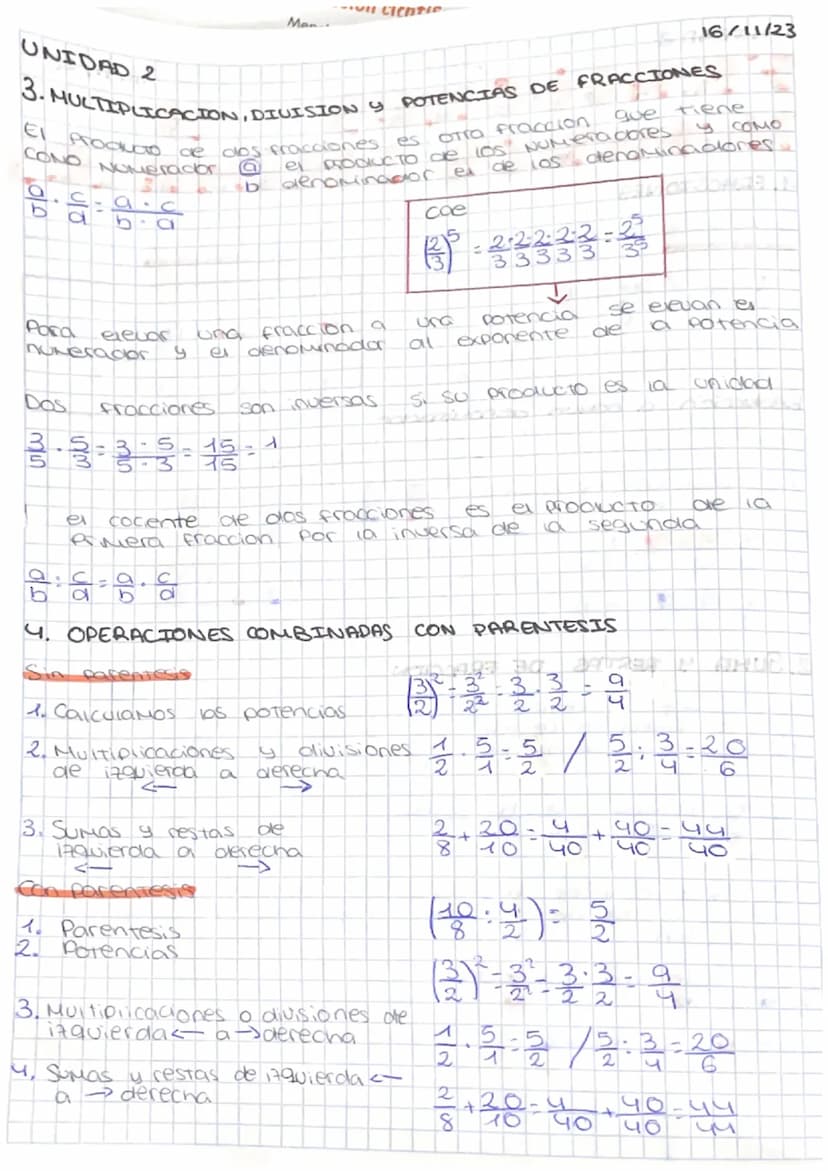 16/11/23
UNIDAD 2
3. MULTIPLICACION, DIVISION y POTENCIAS DE FRACCIONES
El producto de dos fracciones es otra fraccion que tiene
como numerador a el producto de los numeradores y como
b denominador el de los denominadores
a/b · c/d = a · c / b · d
coe
(2/3)^5 = 2·2·2·2·2 / 3 3 3 3 3 = 2^5/3^5
Para elevar una fraccion a una potencia se elevan el
numerador y el denominador al exponente de a potencia
Dos fracciones son inversas si su producto es la unidad
3/5 · 5/3 = 3 · 5 / 5 · 3 = 15/15 = 1
el cocente de dos fracciones es el producto de la
primera fraccion por la inversa de la segunda
a/b : c/d = a/b · c/d
4. OPERACIONES COMBINADAS CON PARENTESIS
Sin parentesis
1. Calculamos los potencias (3/2)^2 = 3^2/2^2 = 3/2 · 3/2 = 9/4
2. Multiplicaciones y divisiones 1/2 · 5/1 = 5/2 / 5/2 : 3/4 = 20/6
de izquierda a derecha
← →
3. Sumas y restas de 2/8 + 20/10 = 4/40 + 40/40 = 44/40
izquierda a derecha
← →
Con parentesis
1. Parentesis (10/8 : 4/2) = 5/2
2. Potencias
(3/2)^2 = 3^2/2^2 = 3/2 · 3/2 = 9/4
3. Multiplicaciones o divisiones de
izquierda ← a → derecha 1/2 · 5/1 = 5/2 / 5/2 : 3/4 = 20/6
4. Sumas y restas de izquierda ←
a → derecha 2/8 + 20/10 = 4/40 + 40/40 = 44/44